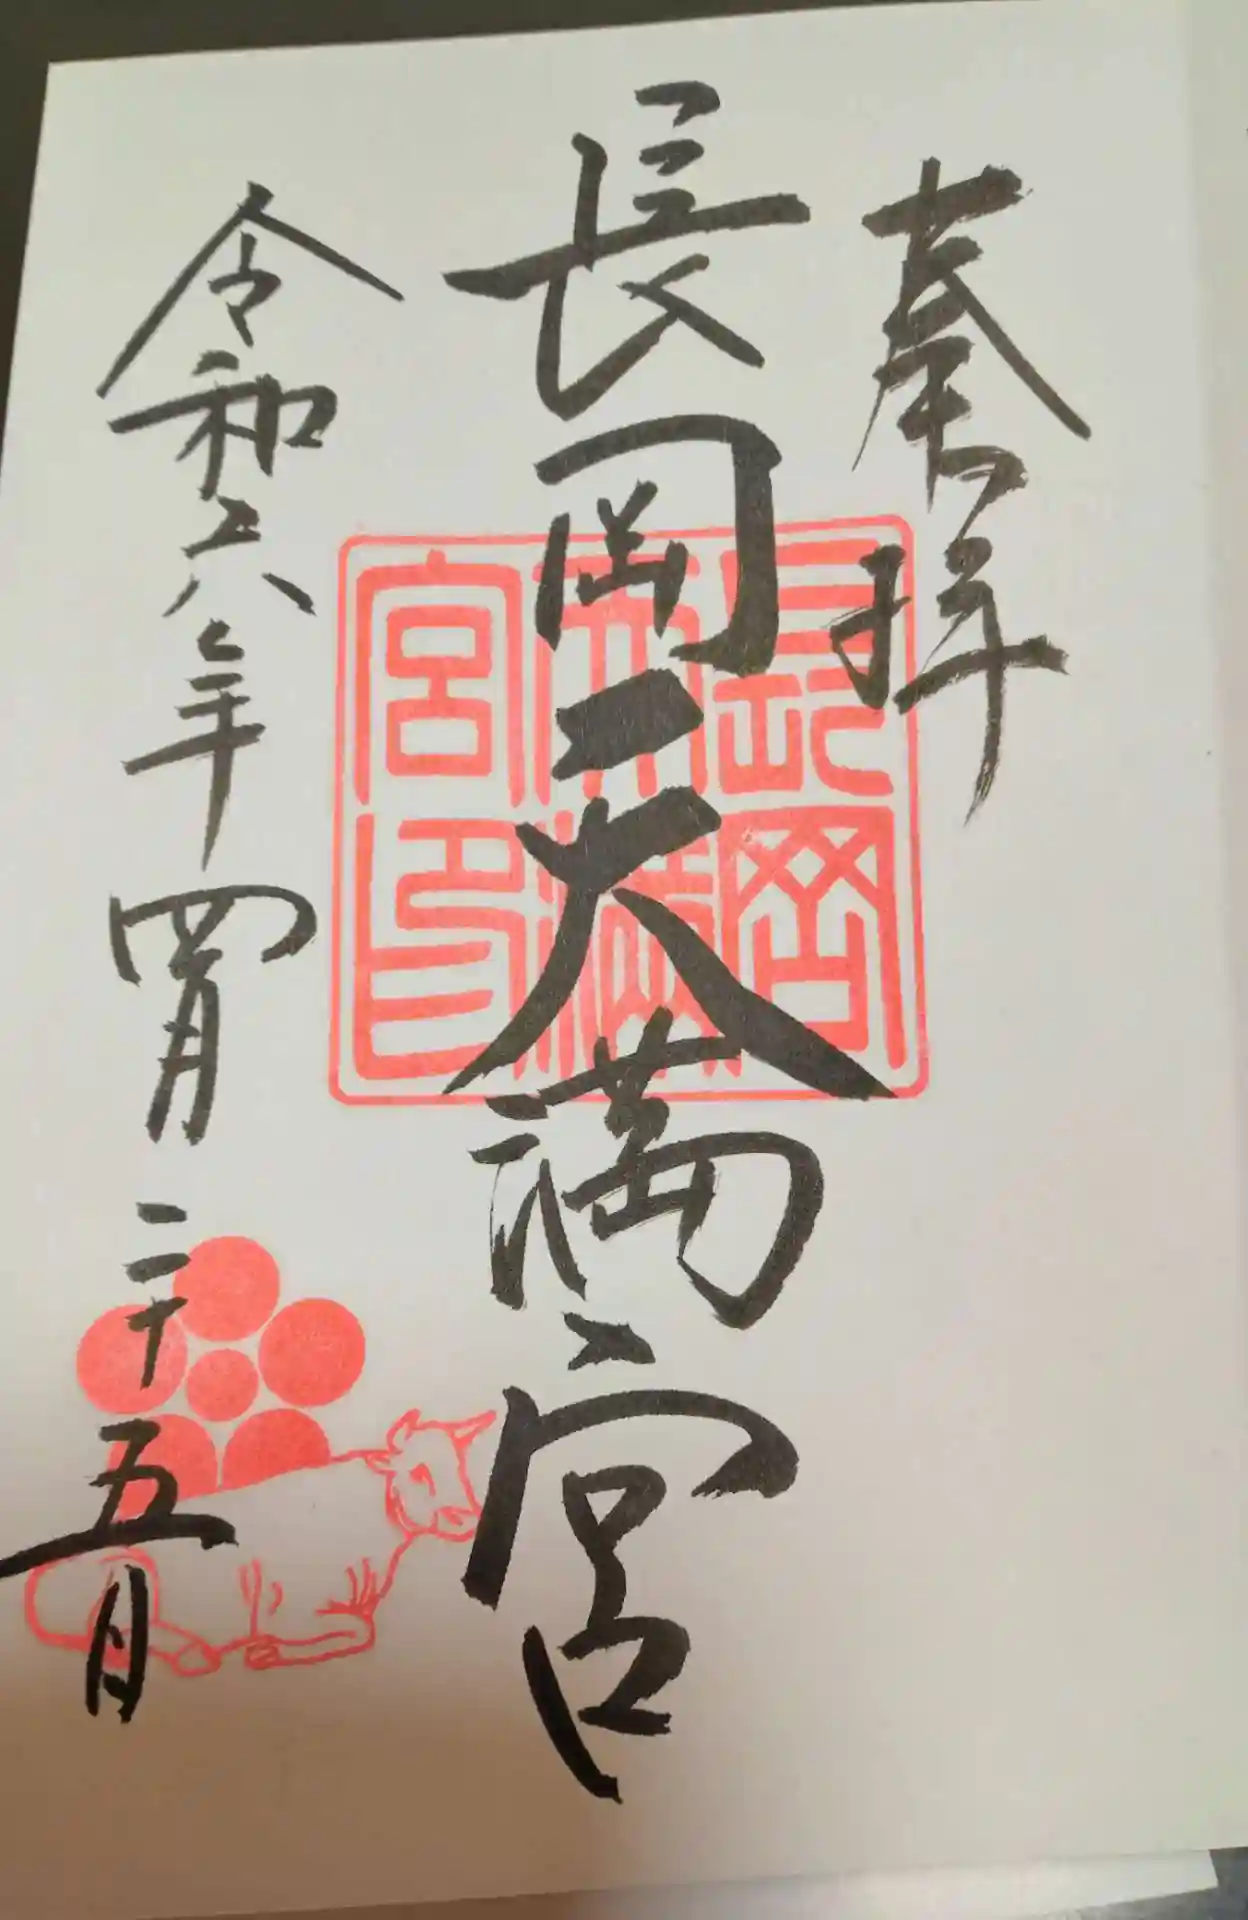 奉拝
長岡天満宮
長岡天満宮印
令和六年四月二十五日